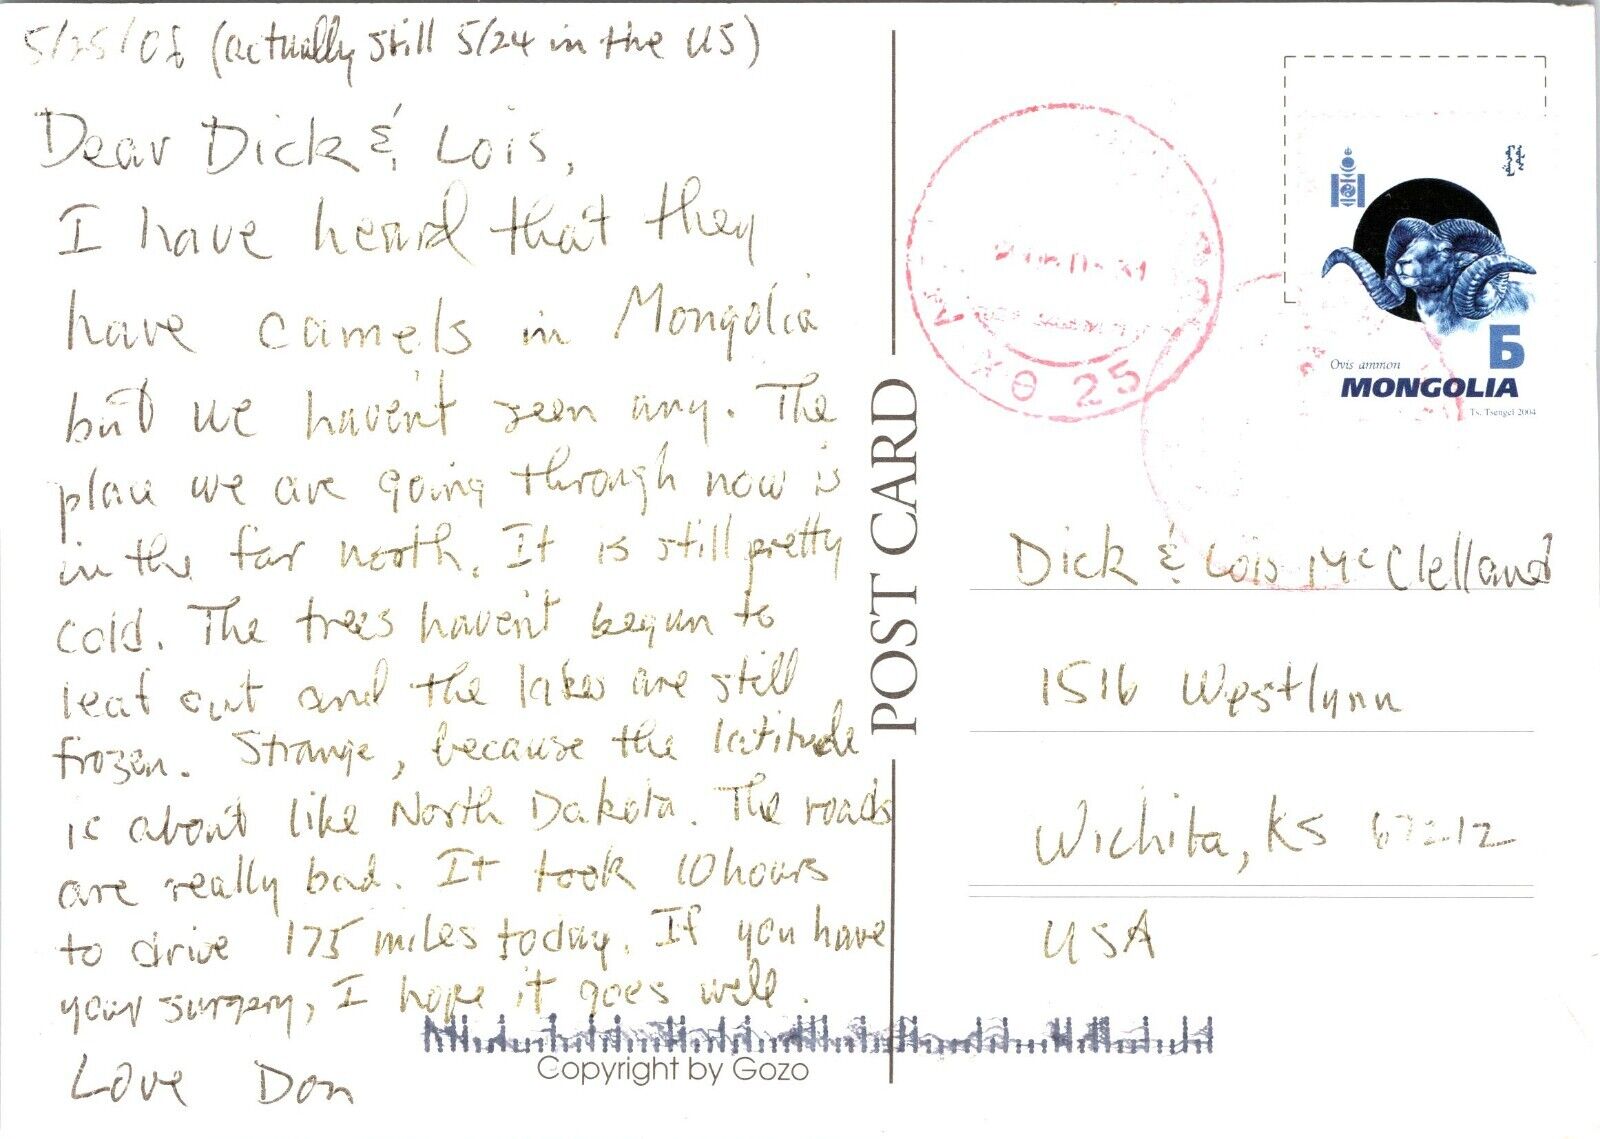 5/25/08 (actually still 5/24 in the US)
Dear Dick & Lois,
I have heard that they
have camels in Mongolia
but we haven't seen any. The
place we are going through now is
in the far north. It is still pretty
cold. The trees haven't begun to
leaf out and the lakes are still
frozen. Strange, because the latitude
is about like North Dakota. The roads
are really bad. It took 10 hours
to drive 175 miles today. If you have
your surgery, I hope it goes well.
Love Don
Copyright by Gozo
POST CARD
25
Ovis ammon
Б
MONGOLIA
Ts. Tsengel 2004
Dick & Lois McClelland
1516 Westlynn
Wichita, KS 67212
USA